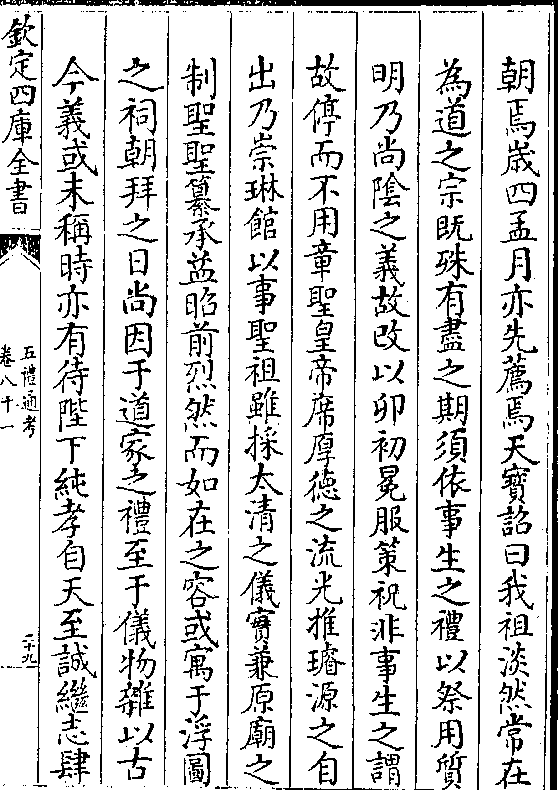 朝焉歳四孟月亦先薦焉天寳詔曰我祖淡然常在
為道之宗既殊有盡之期須依事生之禮以祭用質
明乃尚陰之義故改以卯初冕服策祝非事生之謂
故停而不用章聖皇帝席厚徳之流光推璿源之自
出乃崇琳館以事聖祖雖採太清之儀實兼原廟之
制聖聖纂承益昭前烈然而如在之容或寓于浮圖
之祠朝拜之日尚因于道家之禮至于儀物雜以古
今義或未稱時亦有待陛下純孝自天至誠繼志肆
欽定四庫全書
五禮通考
卷八十一
二十九